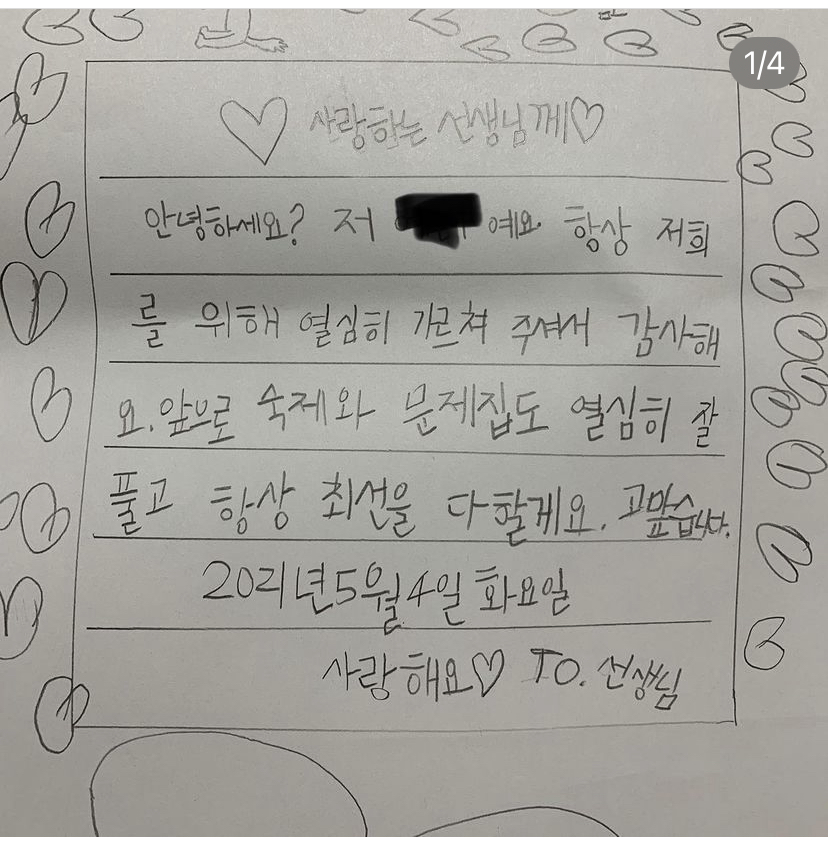 1/4
♡ 사랑하는 선생님께♡
안녕하세요? 저 예요. 항상 저희
를 위해 열심히 가르쳐 주셔서 감사해
요. 앞으로 숙제와 문제집도 열심히 잘
풀고 항상 최선을 다할게요. 고맙습니다.
2021년 5월 4일 화요일
사랑해요♡ TO. 선생님